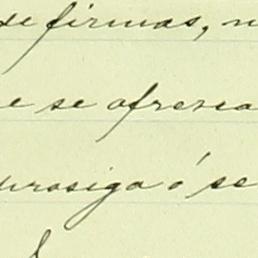 de firmas, n
e se ofresca
urosiga ó se